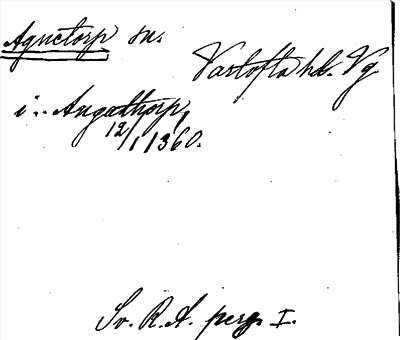 Agnetorp sn.
Vartofta hd. Vg
i .. Angathorp,
12/1 1360.
Sv. R. A. perg. I.